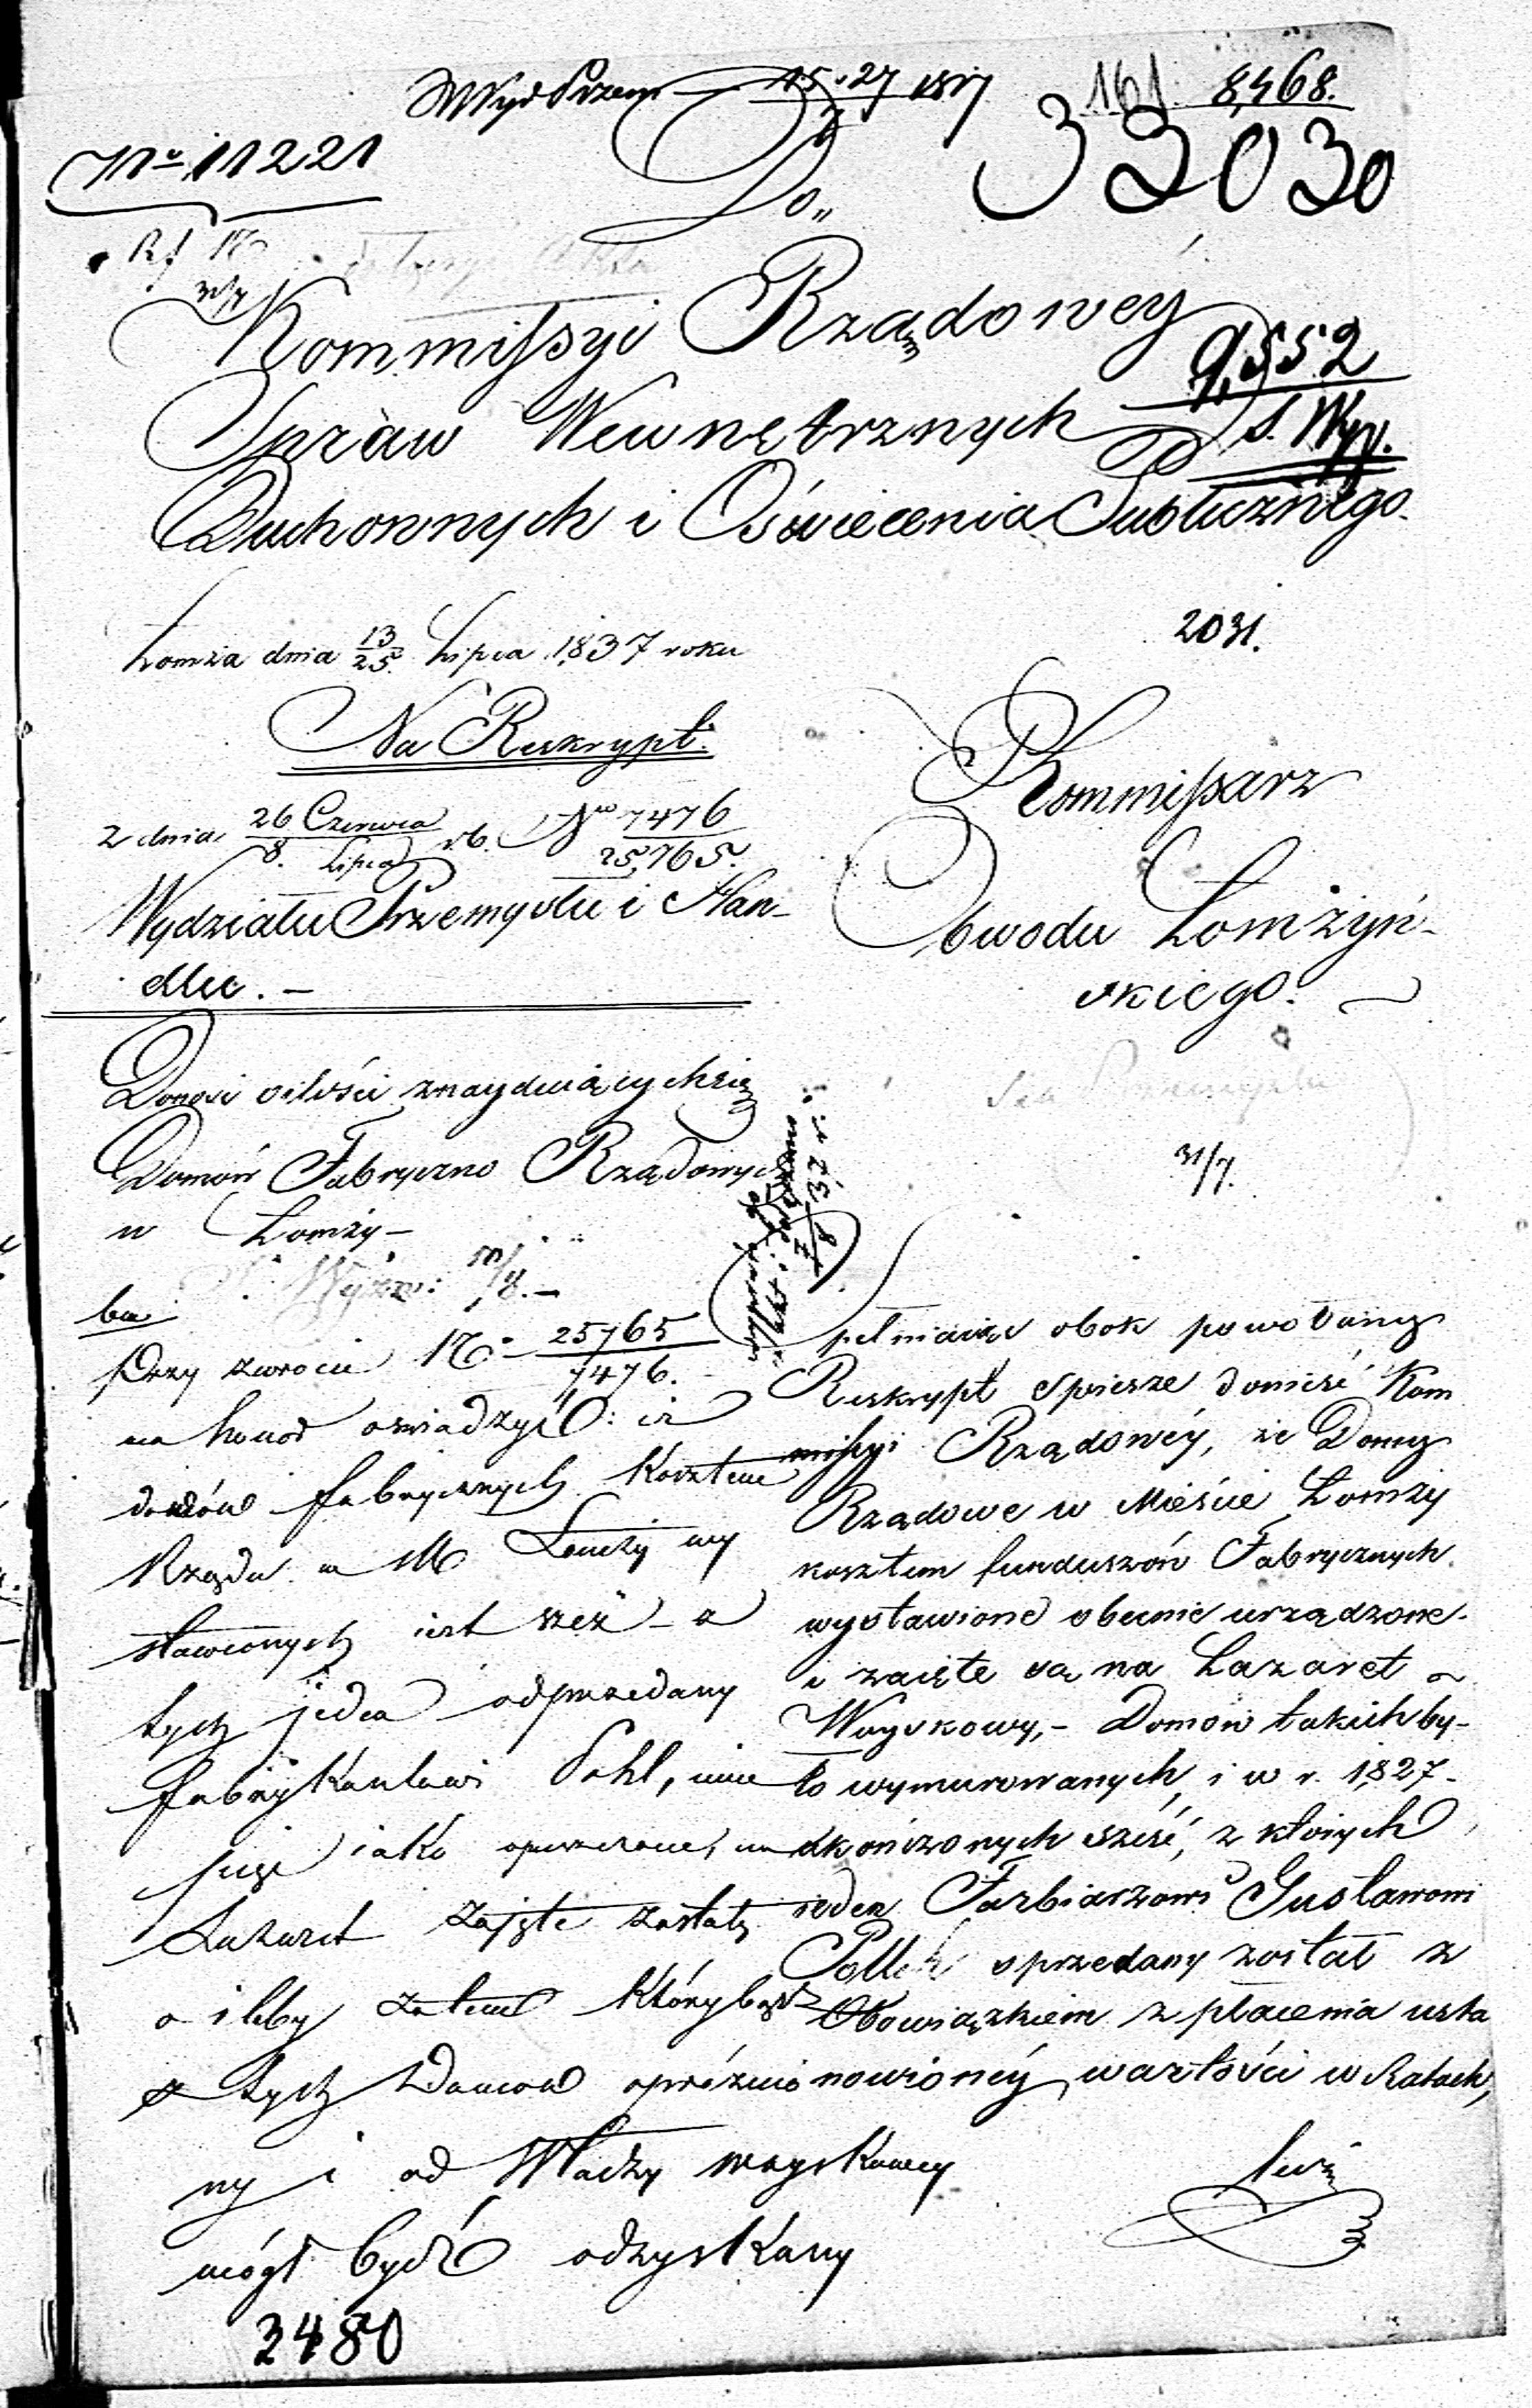 Wyd Przem 15/27 1837 161 8,468.
33030
No 11221
Do,,
Kommissyi Rządowey
9,552
Spraw Wewnętrznych
S. Wyz.
Duchownych i Oświecenia Publicznego
2031.
Łomża dnia 13/25. Lipca 1837 roku
Na Reskrypt.
z dnia 26 Czerwca/8. Lipca rb. Nro 7476/25,765.
Wydziału Przemysłu i Han-
dlu. —
Kommissarz
Obwodu Łomżyń-
skiego.
Donosi o ilości znayduiących się
Domów Fabryczno Rządowych
w Łomży —
31/7.
10/8. —
Przy zwrocie No 25765/7476.
ma honor oświadczyć: iż
domów fabrycznych kosztem
Rządu w M Łomży wy
stawionych iest sześć — z
tych jeden odprzedany
fabrykantowi Pohl, inne
jako opuszczone, na
Lazaret zajęte zostały
o ileby zatem którybądź
z tych Domów opróżnio
ny i od Władzy woyskowey
mógł bydź odzyskany
3480
Spełniaiąc obok powołany
Reskrypt spieszę donieść Kom
missyi Rządowéy, że Domy
Rządowe w Mieście Łomży
kosztem funduszów Fabrycznych
wystawione obecnie urządzone
i zaięte są na Lazaret
Woyskowy, — Domów takich by-
ło wymurowanych, i w r. 1827
ukończonych sześć, z których
ieden Farbiarzowi Gustawowi
sprzedany został z
Obowiązkiem zpłacenia usta
nowionéy wartości w Ratach,